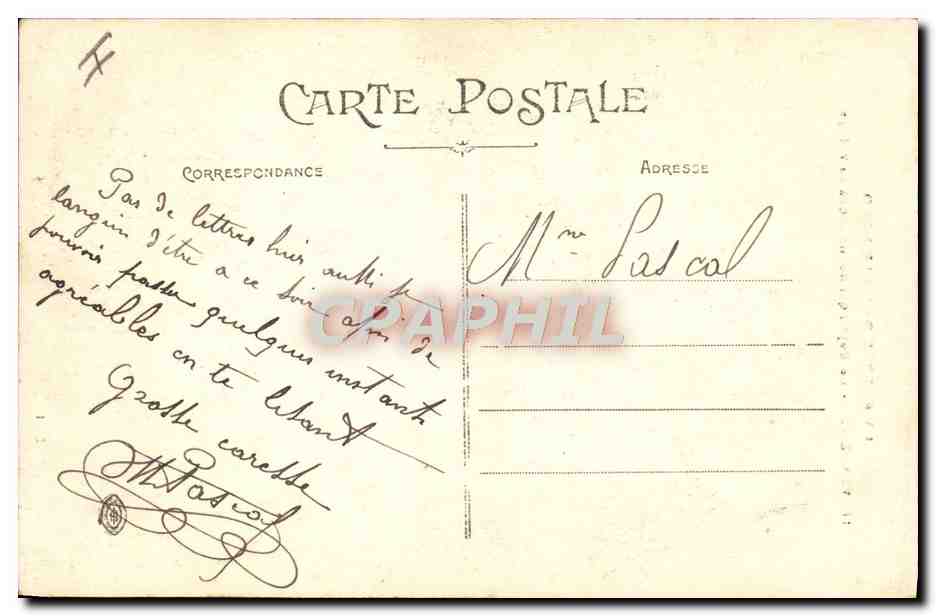 CARTE POSTALE
CORRESPONDANCE
ADRESSE
Pas de lettres hier aussi je
languis d'être a ce soir afin de
pouvoir passer quelques instants
agréables en te lisant
Grosse caresse
M Pascal
Mme Pascal
CPAPHIL